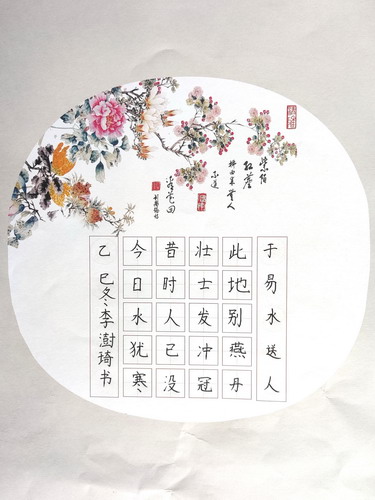 于易水送人
此地别燕丹
壮士发冲冠
昔时人已没
今日水犹寒
乙巳冬李澍琦书